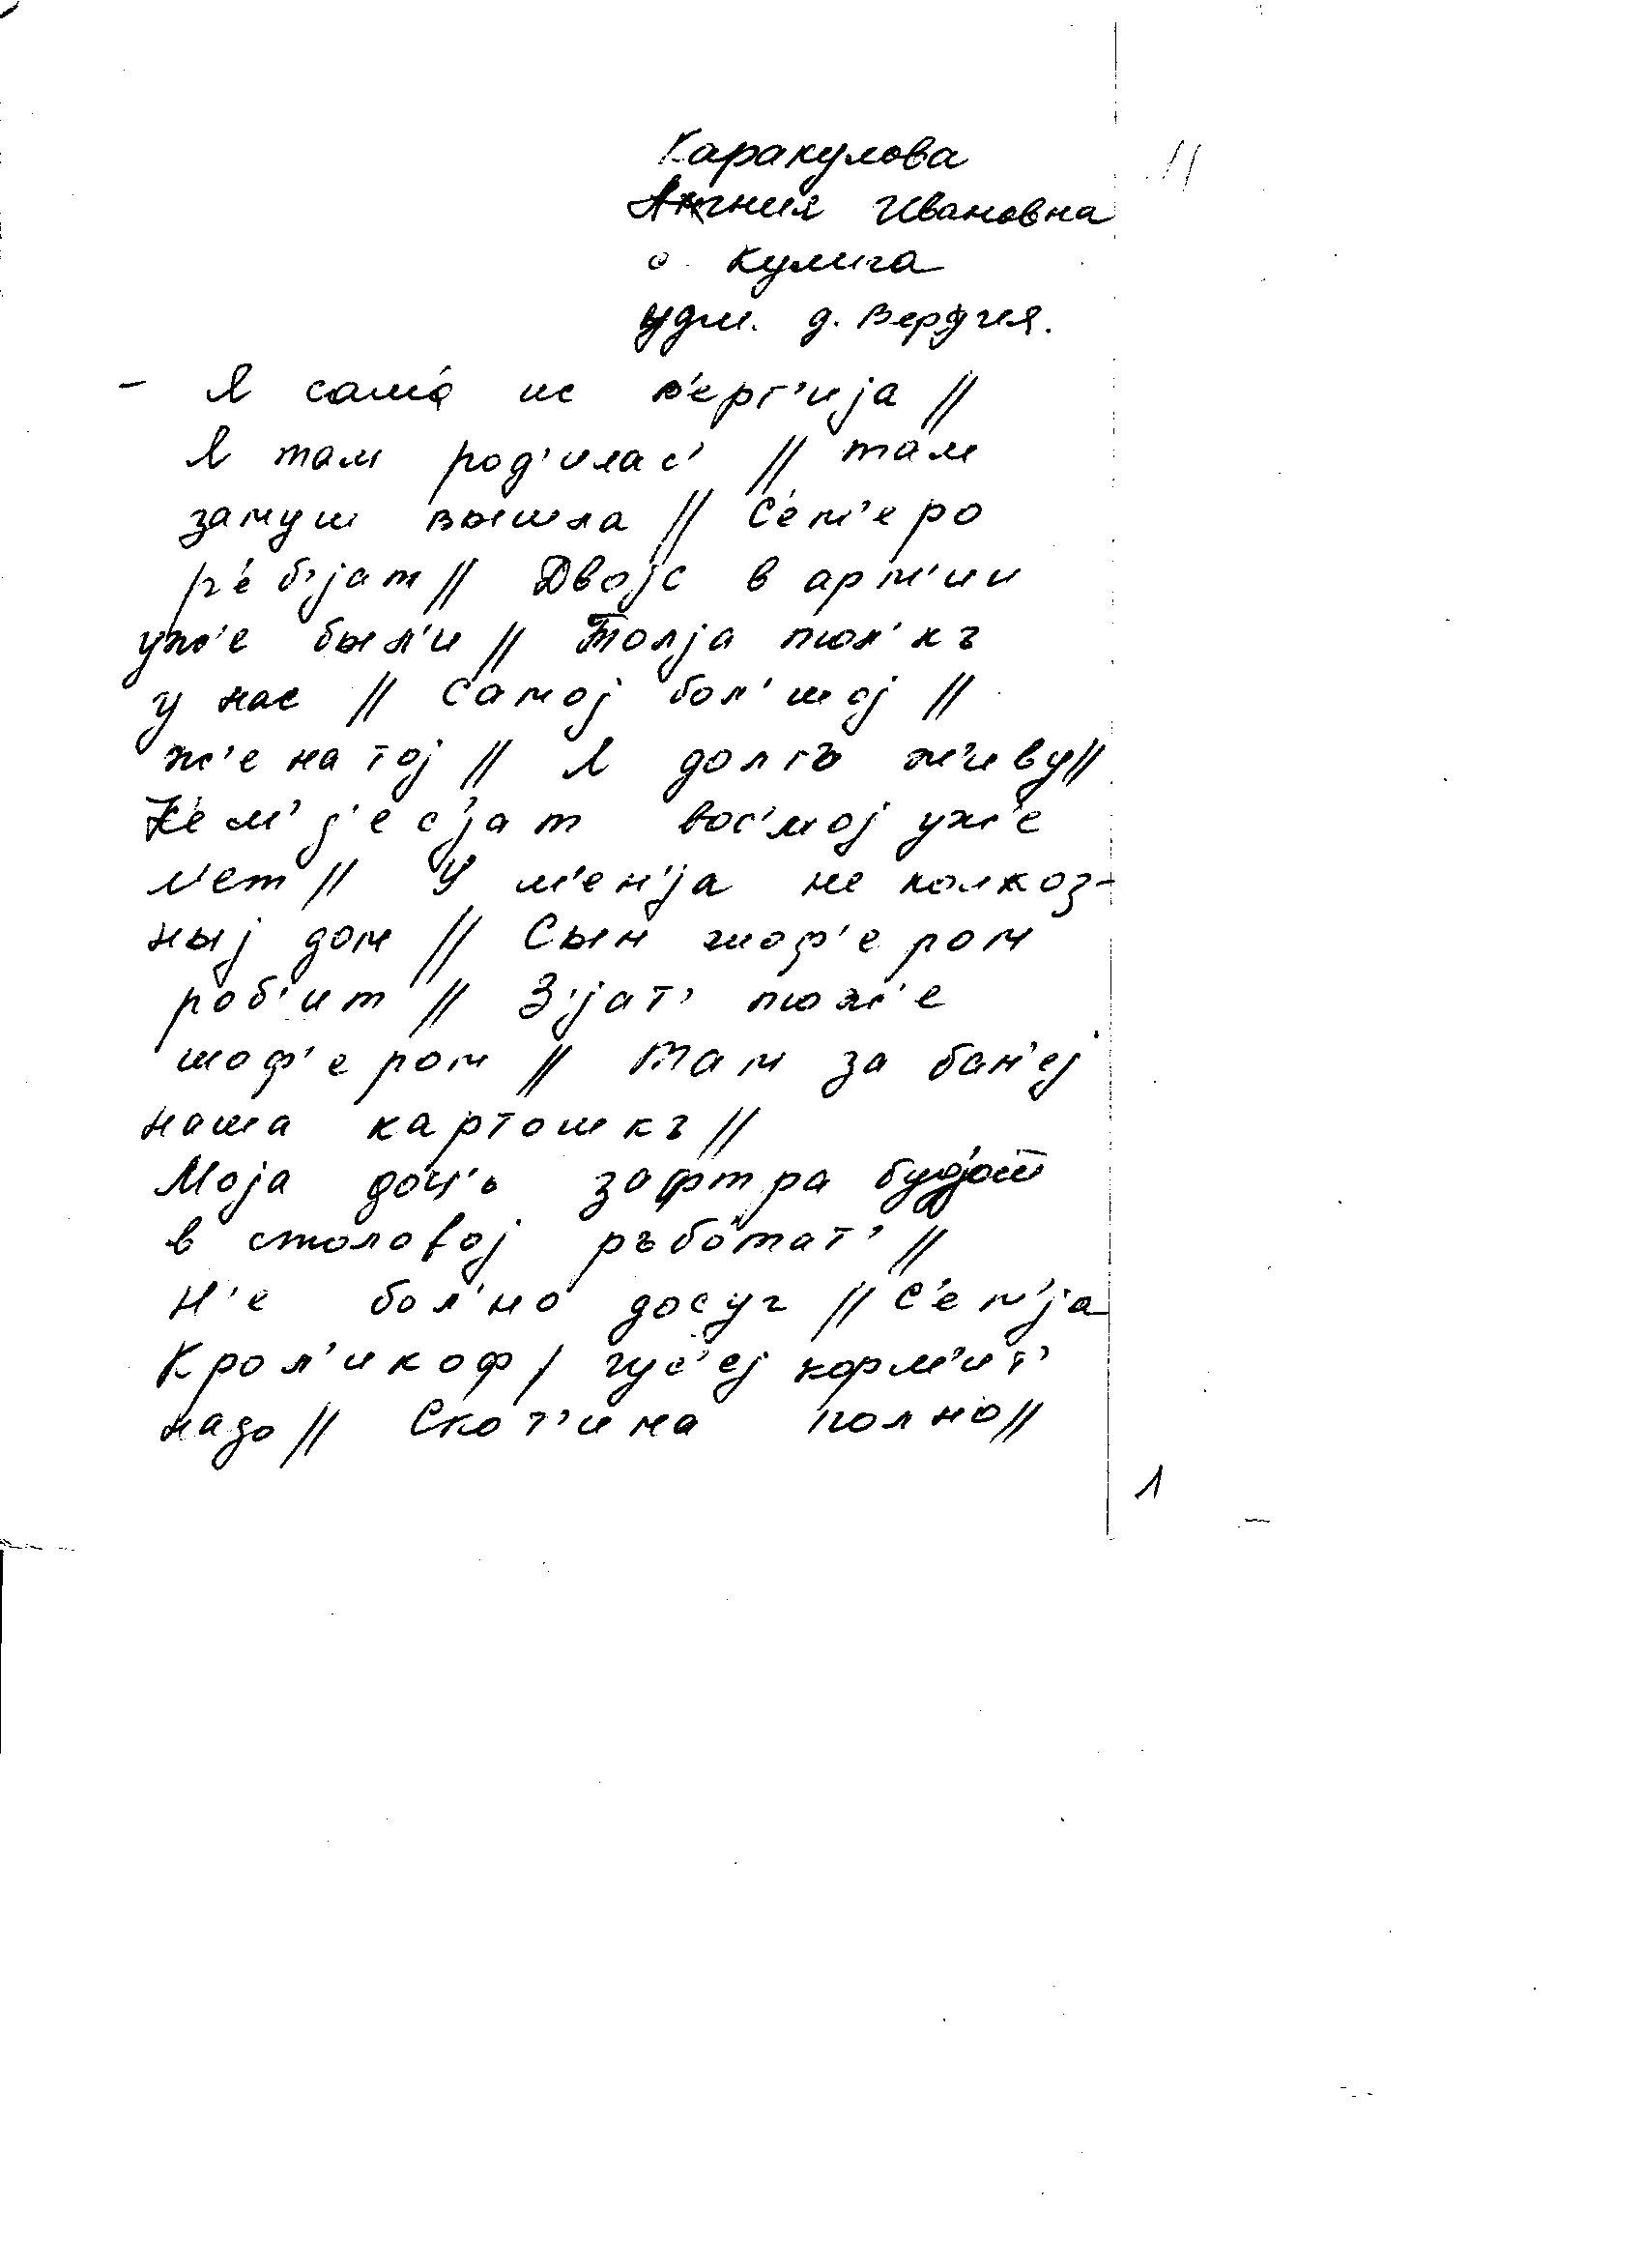 Каракулова
Агния Ивановна
с. Кулига
удм. д. Вердгия.
- Я сама́ ис в'ерг'ија //
Я там род'илас' // там
замуш вышла // С'ем'еро
р'еб'јат // Двојс в арм'ии
уж'е был'и // Толја тол'къ
у нас // Самој бол'шој //
ж'енатој // Я долгъ ж'иву //
С'ем'д'ес'јат вос'мој уж'е
л'ет // У м'ен'ја не колхоз-
ныј дом // Сын шоф'ером
роб'ит // З'јат' тож'е
шоф'ером // Там за бан'еј
наша картошкъ //
Моја доч'ь зафтра будјот
в столовој ръбо́тат' //
Н'е бол'но досуг // С'ем'ја
Крол'икоф / гус'еј корм'ит'
надо // Скот'ина полно //
1